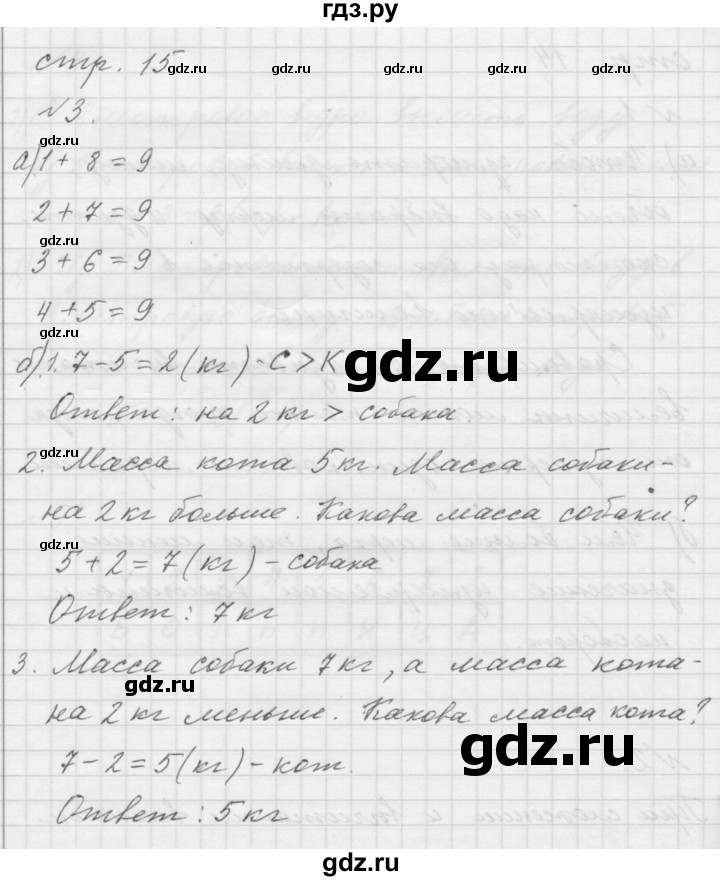 гдз.ру
стр. 15
gdz.ru gdz.ru gdz.ru gdz.ru
№3.
gdz.ru
а) 1 + 8 = 9
2 + 7 = 9
gdz.ru
3 + 6 = 9
4 + 5 = 9
б) 1. 7 - 5 = 2 (кг) - С > К
gdz.ru
gdz.ru
Ответ: на 2 кг > собака.
gdz.ru
2. Масса кота 5 кг. Масса собаки -
на 2 кг больше. Какова масса собаки?
gdz.ru
5 + 2 = 7 (кг) - собака
Ответ: 7 кг
3. Масса собаки 7 кг, а масса кота -
gdz.ru
на 2 кг меньше. Какова масса кота?
7 - 2 = 5 (кг) - кот.
gdz.ru
Ответ: 5 кг
gdz.ru